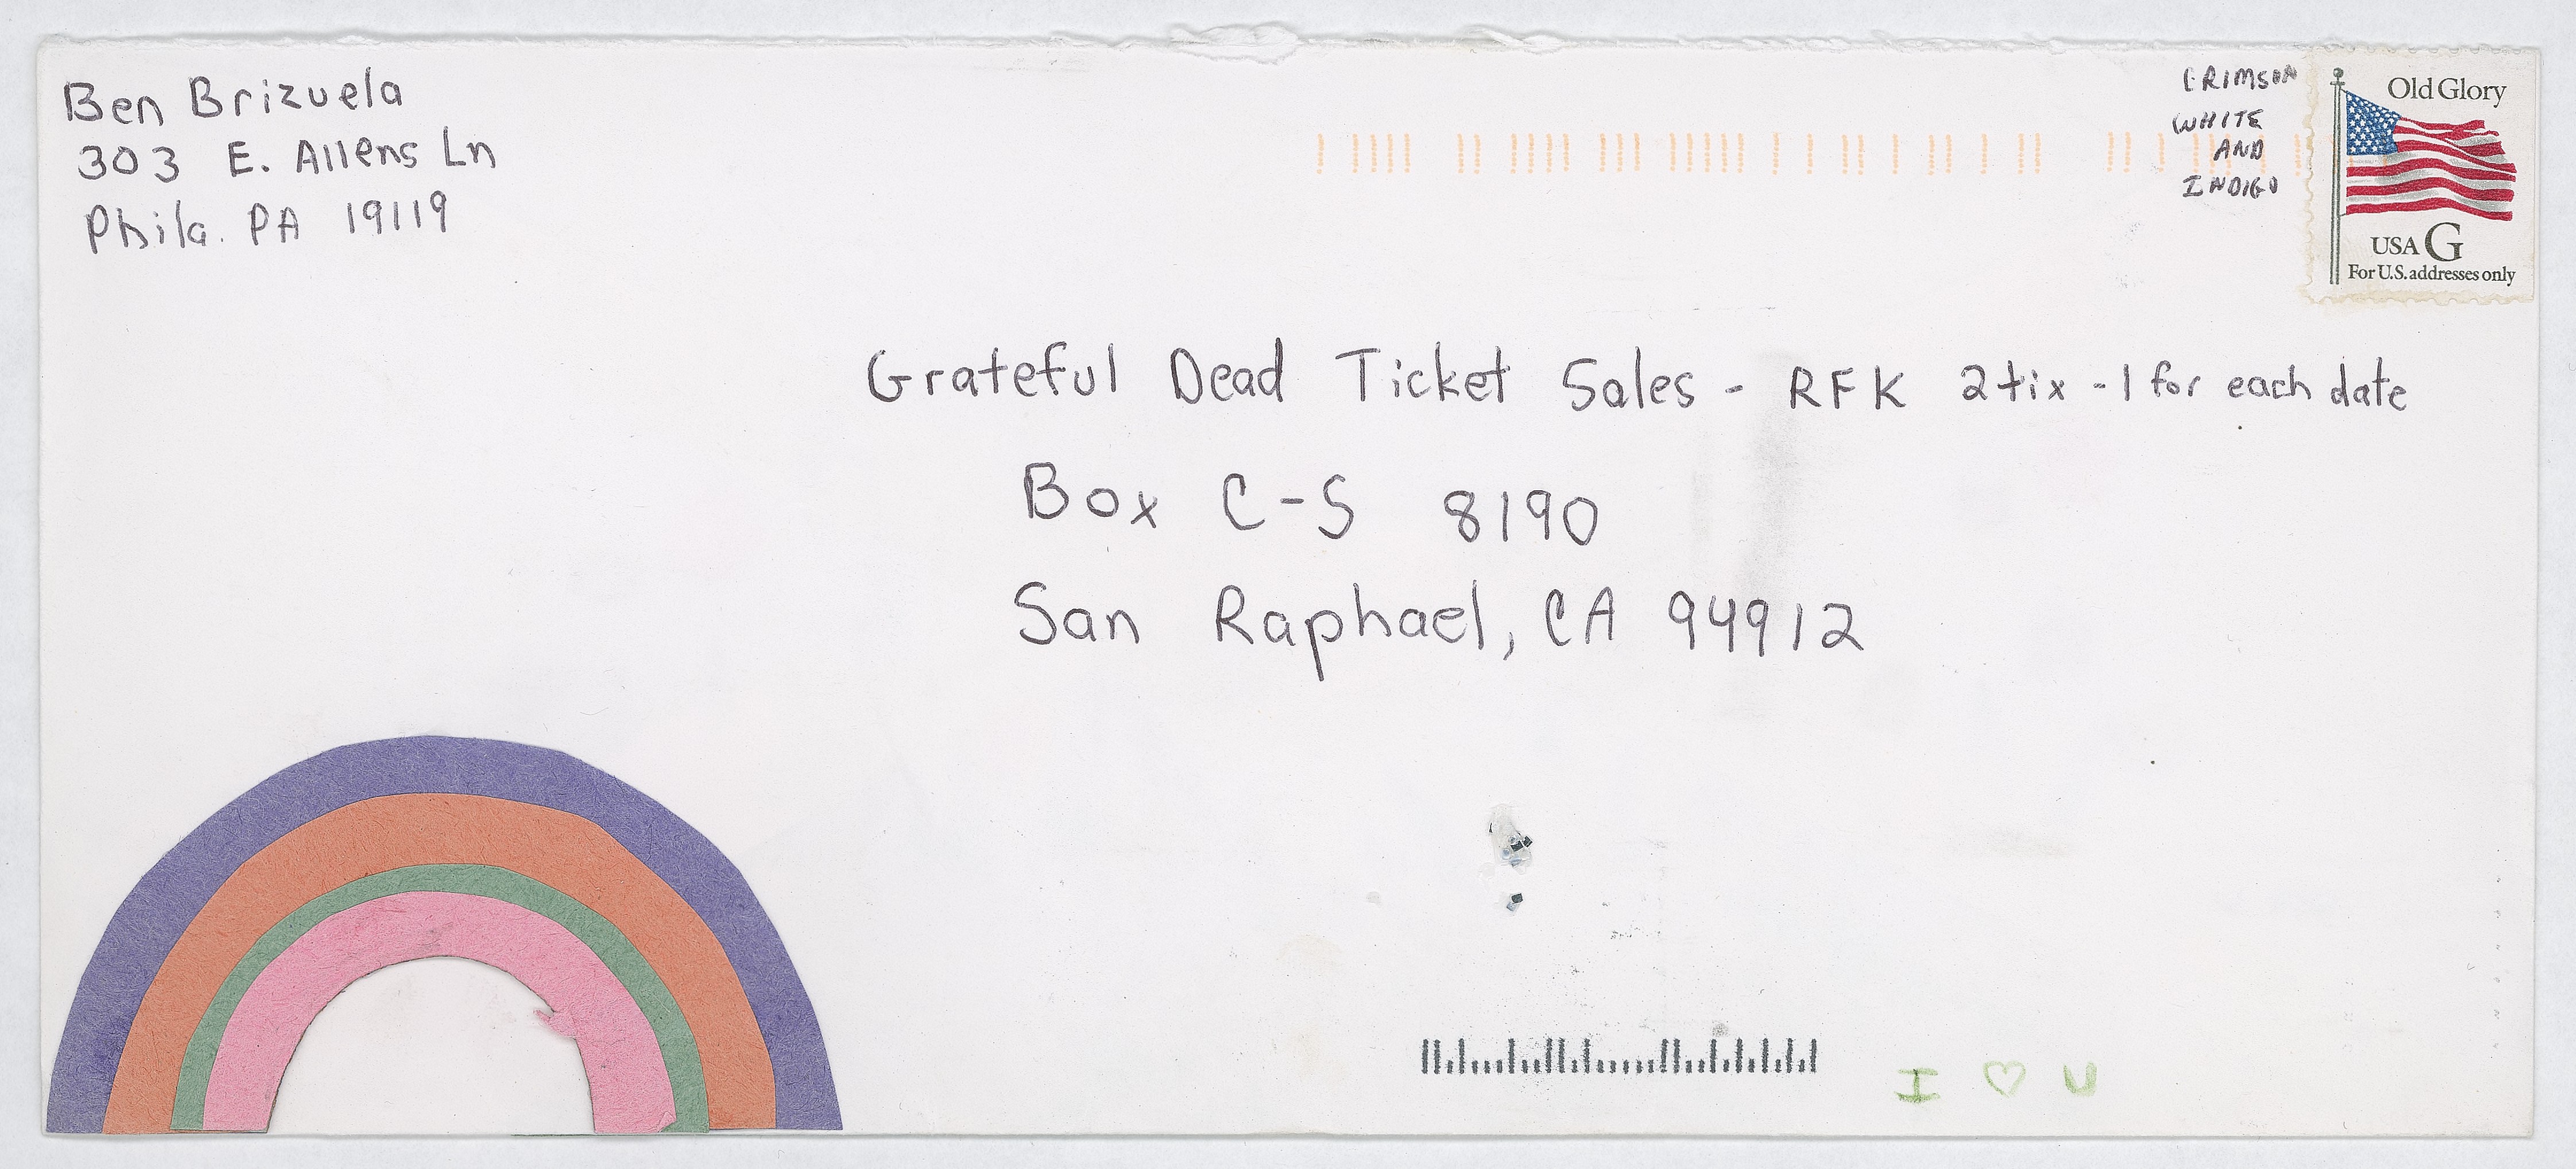 Ben Brizuela
303 E. Allens Ln
Phila. PA 19119
CRIMSON
WHITE
AND
INDIGO
Old Glory
USA G
For U.S. addresses only
Grateful Dead Ticket Sales - RFK 2 tix - 1 for each date
Box C-S 8190
San Raphael, CA 94912
I ♡ U